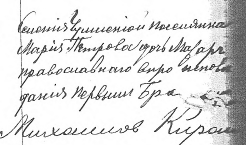 селенія Чулиенгіой поселянка
Марія Петрова дочь Мазар
православнаго вѣроиспове
данія первымъ бра
Михаилов Кирои